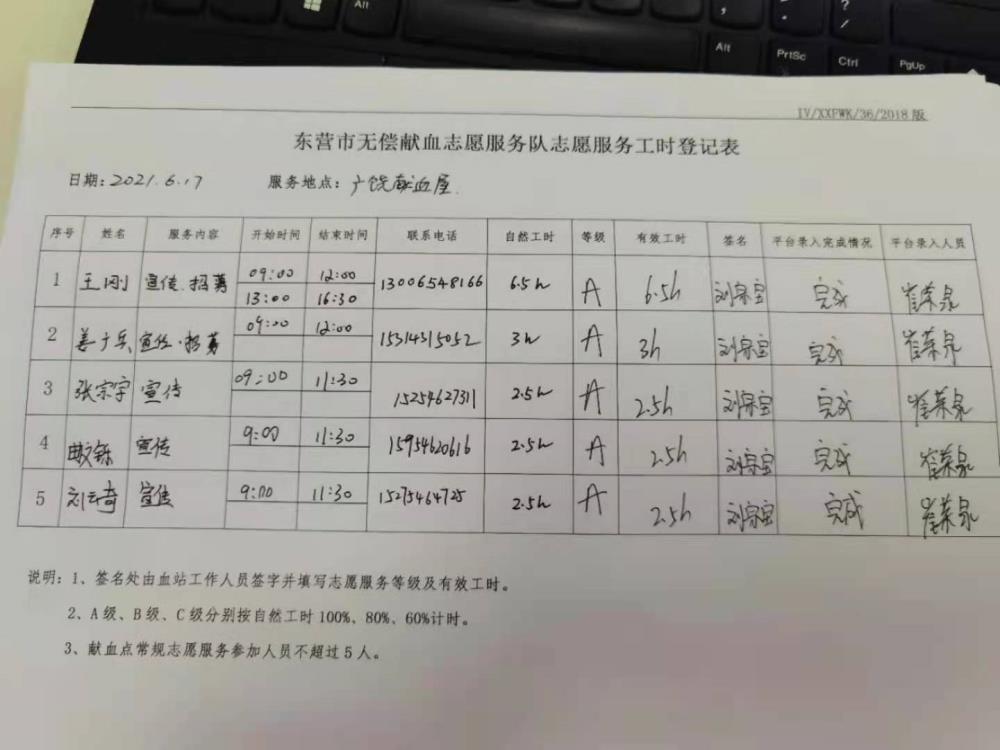 Alt
Alt PrtSc Ctrl PgUp
IV/XXFWK/36/2018版
东营市无偿献血志愿服务队志愿服务工时登记表
日期：2021.6.17 服务地点：广饶献血屋
序号 姓名 服务内容 开始时间 结束时间 联系电话 自然工时 等级 有效工时 签名 平台录入完成情况 平台录入人员
1 王刚 宣传、招募 09:00 12:00 13006548166 6.5h A 6.5h 完成
13:00 16:30
2 宣传·招募 09:00 12:00 15314315052 3h A 3h 完成
3 张宗宇 宣传 09:00 11:30 15254627311 2.5h A 2.5h 完成
4 宣传 9:00 11:30 15954620616 2.5h A 2.5h 完成
5 刘云奇 宣传 9:00 11:30 15275464725 2.5h A 2.5h 完成
说明：1、签名处由血站工作人员签字并填写志愿服务等级及有效工时。
2、A级、B级、C级分别按自然工时100%、80%、60%计时。
3、献血点常规志愿服务参加人员不超过5人。